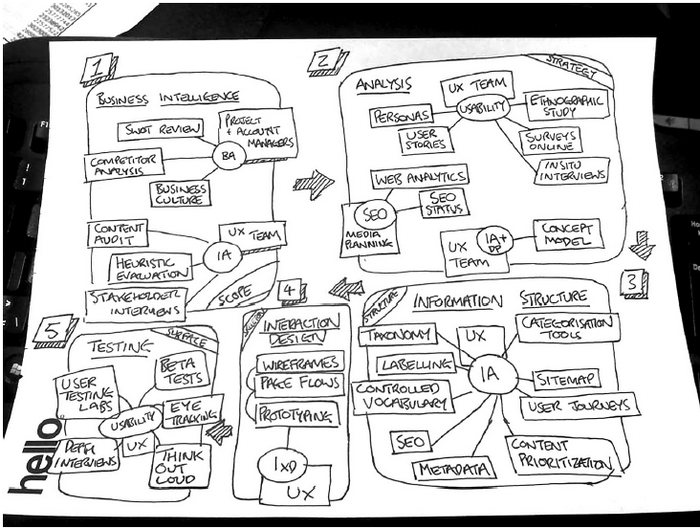 1
BUSINESS INTELLIGENCE
SWOT REVIEW
PROJECT
+ ACCOUNT
MANAGERS
BA
COMPETITOR
ANALYSIS
BUSINESS
CULTURE
CONTENT
AUDIT
UX
TEAM
IA
HEURISTIC
EVALUATION
STAKEHOLDER
INTERVIEWS
SCOPE
2
STRATEGY
ANALYSIS
UX TEAM
USABILITY
PERSONAS
USER
STORIES
ETHNOGRAPHIC
STUDY
SURVEYS
ONLINE
INSITU
INTERVIEWS
WEB ANALYTICS
SEO
STATUS
SEO
MEDIA
PLANNING
UX
TEAM
IA+
CONCEPT
MODEL
3
STRUCTURE
INFORMATION STRUCTURE
TAXONOMY
UX
CATEGORISATION
TOOLS
LABELLING
IA
SITEMAP
CONTROLLED
VOCABULARY
USER JOURNEYS
SEO
METADATA
CONTENT
PRIORITIZATION
4
INTERACTION
DESIGN
WIREFRAMES
PAGE FLOWS
PROTOTYPING
IXD
UX
5
SURFACE
TESTING
BETA
TESTS
USER
TESTING
LABS
USABILITY
EYE
TRACKING
UX
DEPTH
INTERVIEWS
THINK
OUT
LOUD
hello